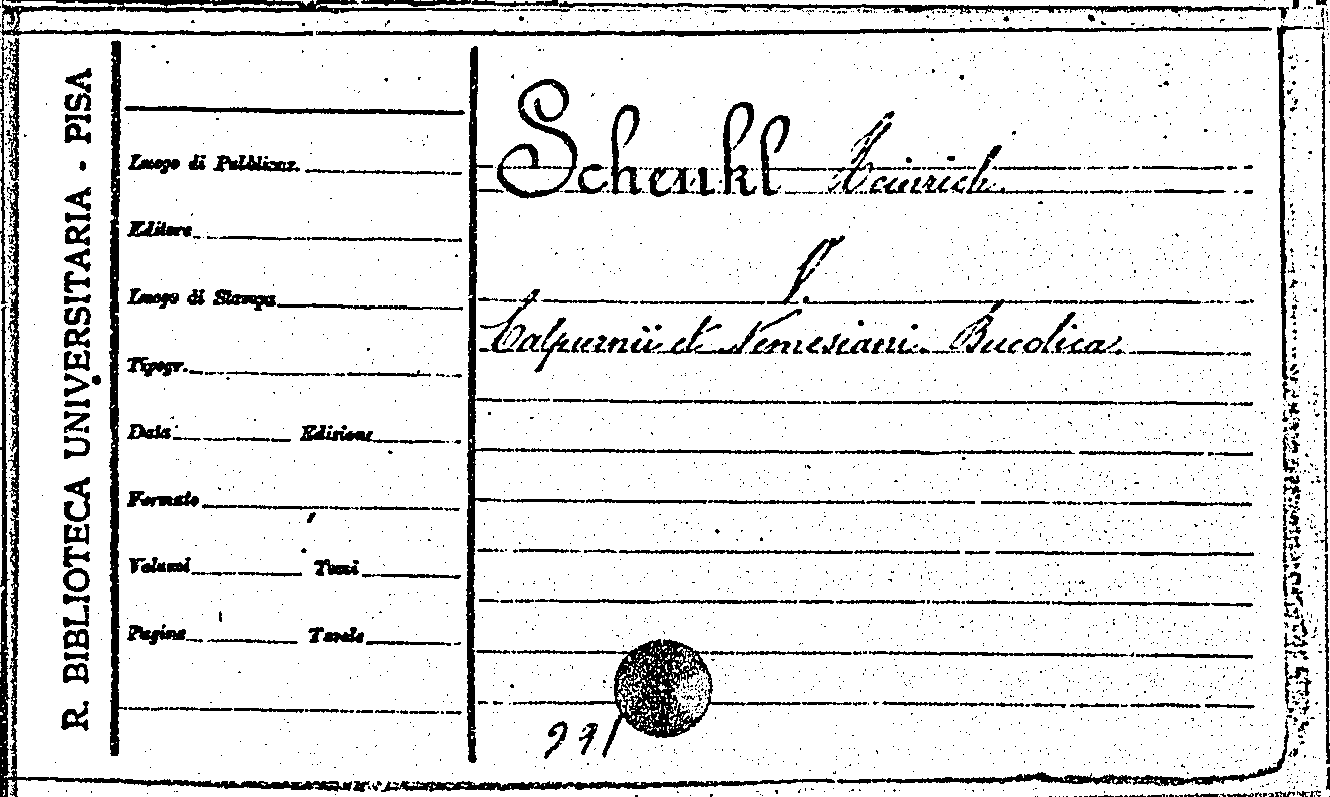 R. BIBLIOTECA UNIVERSITARIA - PISA
Luogo di Pubblicaz.
Editore
Luogo di Stampa
Tipogr.
Data Edizione
Formato
Volumi Tomi
Pagine Tavole
Schenkl Heinrich.
V.
Calpurnii et Nemesiani. Bucolica.
991